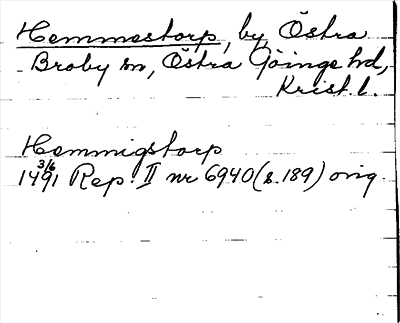 Hemmestorp, by Östra
Broby sn, Östra Göinge hd,
Krist. l.
Hemmigstorp
1491 3/6 Rep. II nr 6940 (s. 189) orig.